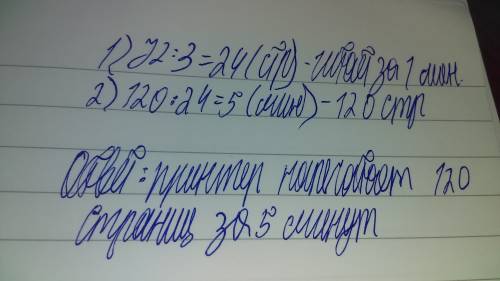 1) 72:3=24 (стр) - за 1 мин.
2) 120:24=5 (мин) - 120 стр
Ответ: принтер напечатает 120
страниц за 5 минут